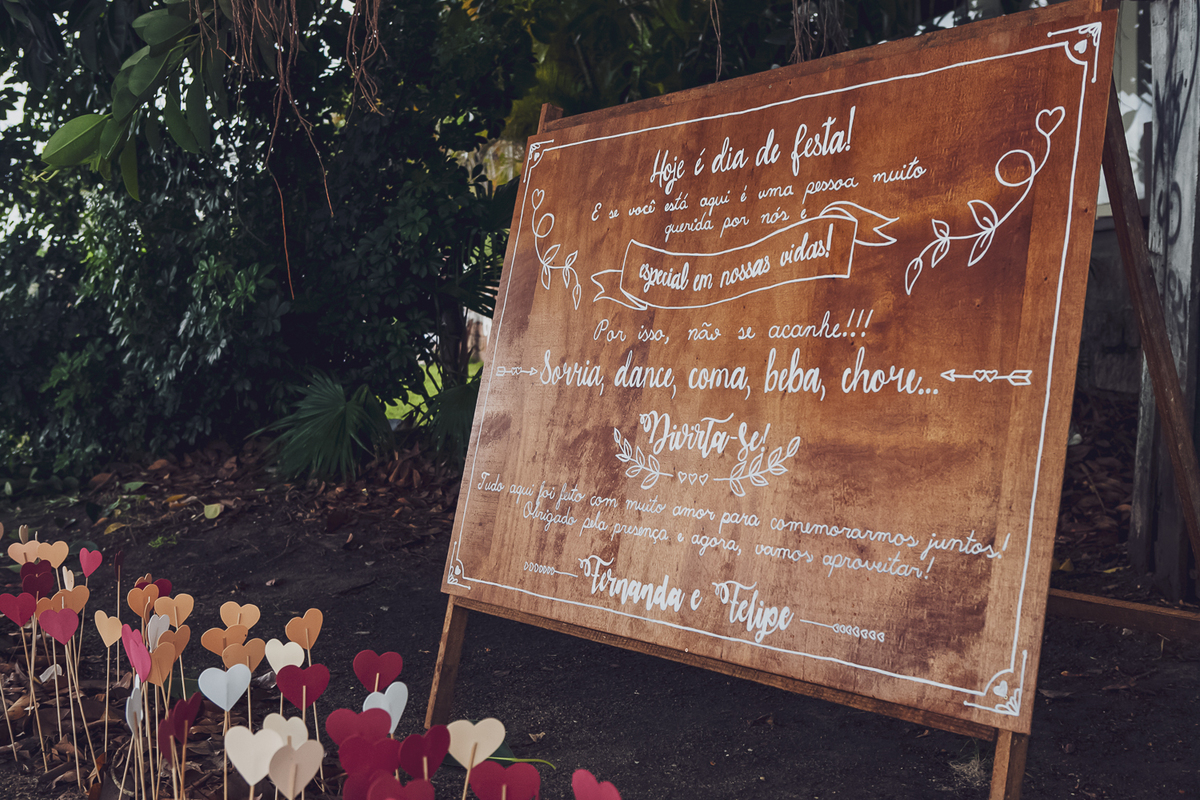 Hoje é dia de festa!
E se você está aqui é uma pessoa muito
querida por nós e
especial em nossas vidas!
Por isso, não se acanhe!!!
Sorria, dance, coma, beba, chore...
Divirta-se!
Tudo aqui foi feito com muito amor para comemorarmos juntos!
Obrigado pela presença e agora, vamos aproveitar!
Fernanda e Felipe